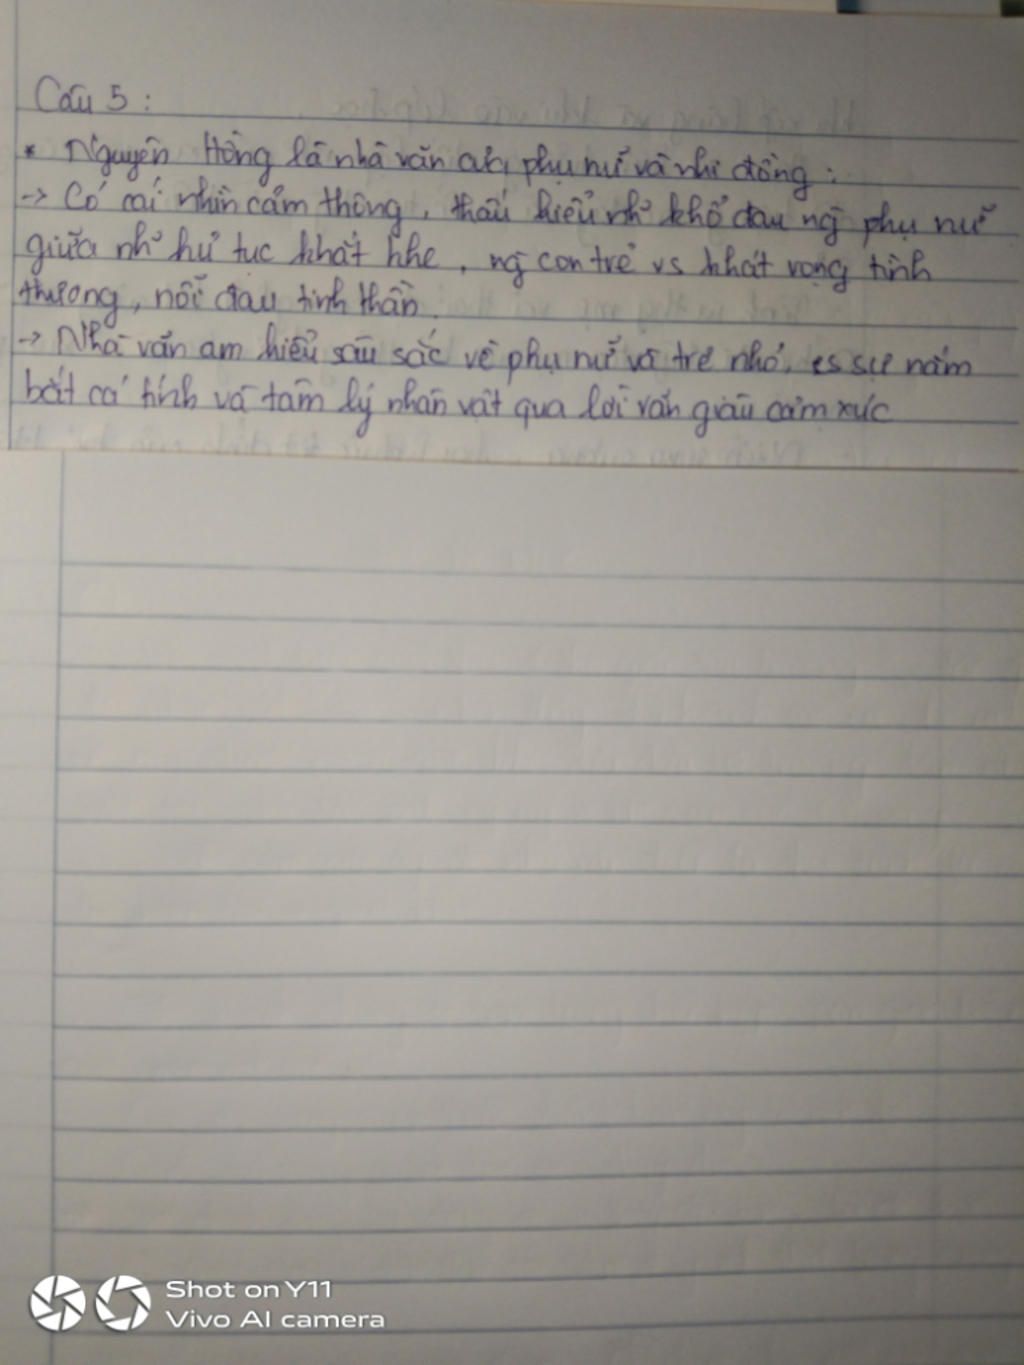 Câu 5 :
* Nguyên Hồng là nhà văn của phụ nữ và nhi đồng :
-> Có cái nhìn cảm thông, thấu hiểu nh~ khổ đau ng~ phụ nữ
giữa nh~ hủ tục khắt khe, ng~ con trẻ vs khát vọng tình
thương, nỗi đau tinh thần.
-> Nhà văn am hiểu sâu sắc về phụ nữ và trẻ nhỏ, sự nắm
bắt cá tính và tâm lý nhân vật qua lời văn giàu cảm xúc
Shot on Y11
Vivo AI camera